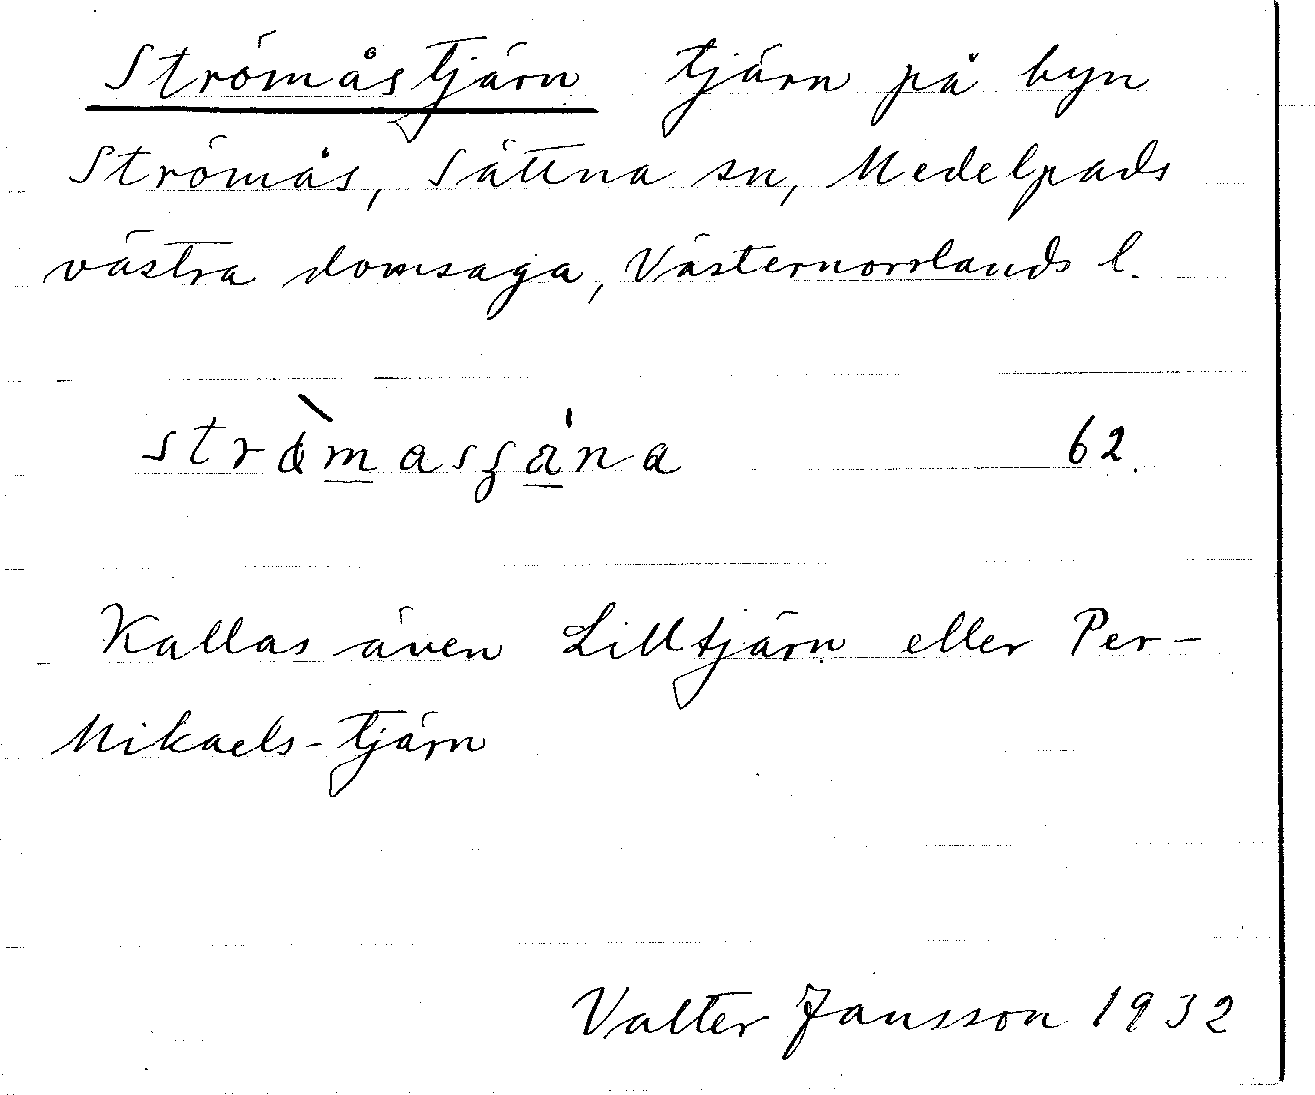 Strömåstjärn tjärn på byn
Strömås, Sättna sn, Medelpads
västra domsaga, Västernorrlands l.
62.
Kallas även Lilltjärn eller Per-
Mikaels-tjärn
Valter Jansson 1932